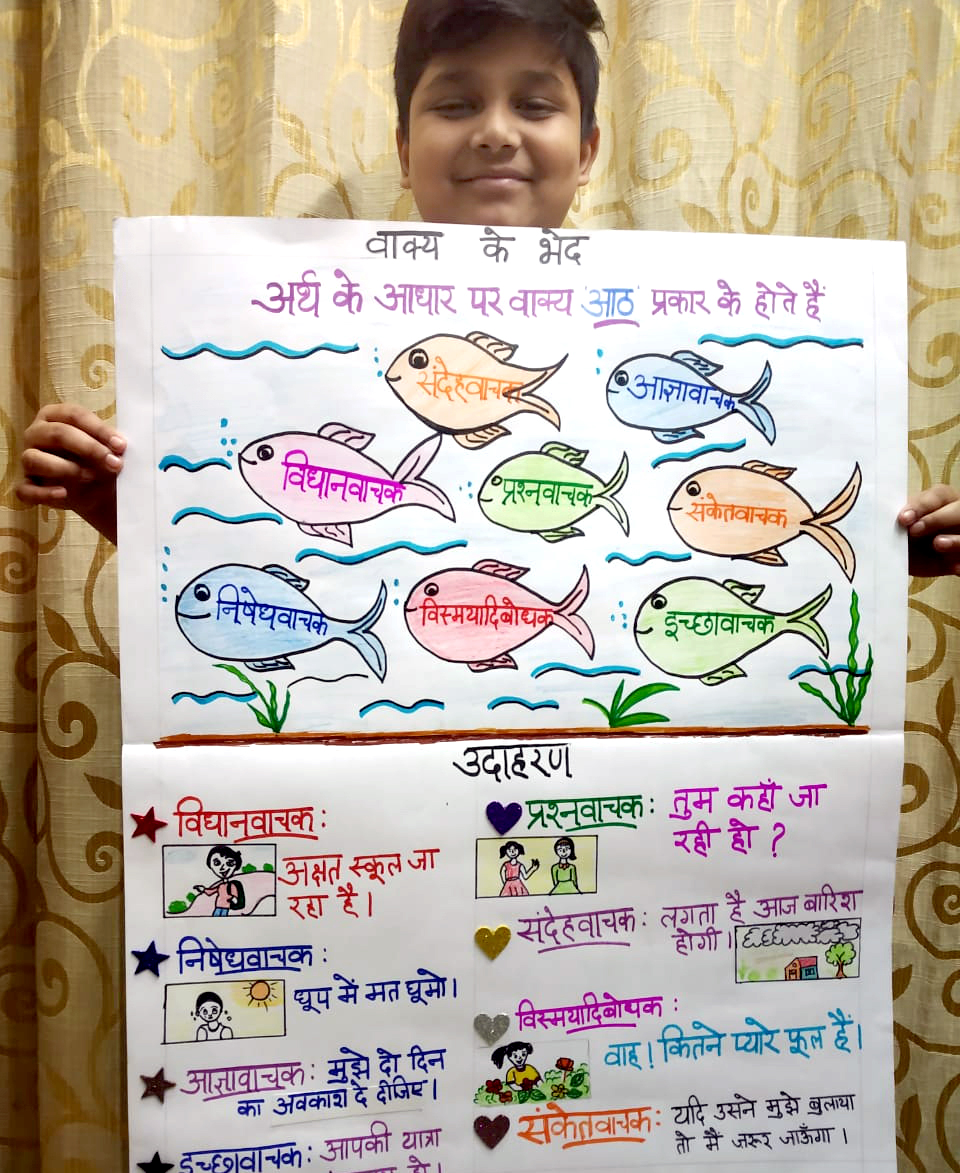 वाक्य के भेद
अर्थ के आधार पर वाक्य 'आठ' प्रकार के होते हैं
संदेहवाचक
आज्ञावाचक
विधानवाचक
प्रश्नवाचक
संकेतवाचक
निषेधवाचक
विस्मयादिबोधक
इच्छावाचक
उदाहरण
विधानवाचक:
अक्षत स्कूल जा
रहा है।
निषेधवाचक:
धूप में मत घूमो।
आज्ञावाचक: मुझे दो दिन
का अवकाश दे दीजिए।
इच्छावाचक: आपकी यात्रा
हो।
प्रश्नवाचक: तुम कहाँ जा
रही हो ?
संदेहवाचक: लगता है आज बारिश
होगी।
विस्मयादिबोधक:
वाह! कितने प्यारे फूल हैं।
संकेतवाचक: यदि उसने मुझे बुलाया
तो मैं जरूर जाऊँगा।